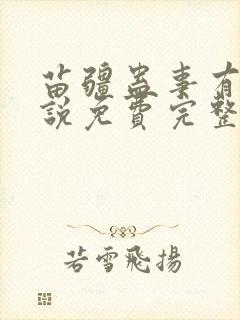 苗疆蛊事有
說免費完整
若雪飛揚